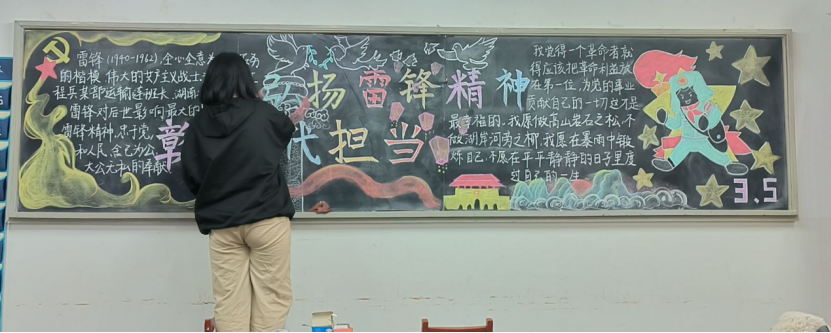 雷锋(1940-1962),全心全意为
的楷模 伟大的
程兵某部运输连班长 湖南
雷锋对后世影响最大的
雷锋精神,忠于党,
和人民,舍己为公,
大公无私的奉献
弘扬雷锋精神
彰 代担当
我觉得一个革命者就
得应该把革命利益放
在第一位,为党的事业
贡献自己的一切这不是
最幸福的,我愿做高山岩石之松,不
做湖岸河旁之柳,我愿在暴雨中锻
炼自己,不愿在平平静静的日子里度
过自己的一生
3.5